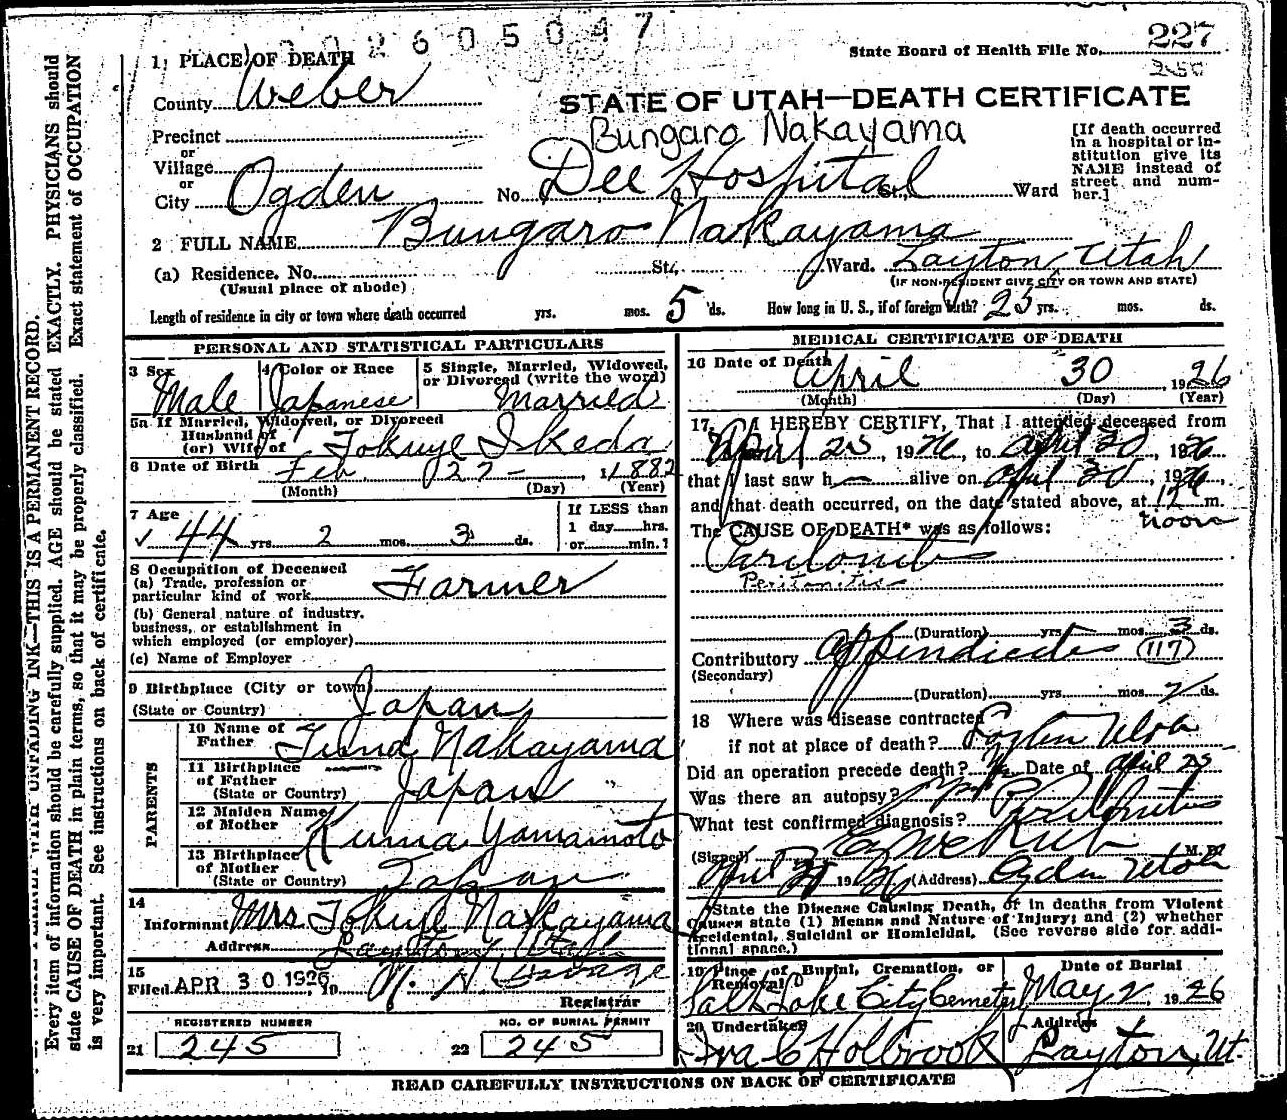 2605047
State Board of Health File No. 227
250
1 PLACE OF DEATH
County Weber
STATE OF UTAH—DEATH CERTIFICATE
Bungaro Nakayama
Precinct
or
Village
or
City Ogden No. Dee Hospital St., Ward
[If death occurred in a hospital or institution give its NAME instead of street and number.]
2 FULL NAME Bungaro Nakayama
(a) Residence. No. St., Ward. Layton, Utah
(Usual place of abode) (IF NON-RESIDENT GIVE CITY OR TOWN AND STATE)
Length of residence in city or town where death occurred yrs. mos. 5 ds. How long in U. S., if of foreign birth? 25 yrs. mos. ds.
PERSONAL AND STATISTICAL PARTICULARS
3 Sex 4 Color or Race 5 Single, Married, Widowed, or Divorced (write the word)
Male Japanese Married
5a If Married, Widowed, or Divorced
Husband of
(or) Wife of Tokuye Ikeda
6 Date of Birth Feb 27 - 1882
(Month) (Day) (Year)
7 Age If LESS than
1 day hrs.
44 yrs. 2 mos. 3 ds. or min.?
8 Occupation of Deceased
(a) Trade, profession or
particular kind of work Farmer
(b) General nature of industry,
business, or establishment in
which employed (or employer)
(c) Name of Employer
9 Birthplace (City or town)
(State or Country) Japan
PARENTS
10 Name of
Father Nakayama
11 Birthplace
of Father
(State or Country) Japan "
12 Maiden Name
of Mother Kuma Yamamoto
13 Birthplace
of Mother
(State or Country) Japan
14
Informant Mrs. Tokuye Nakayama
Address Layton, Utah
15
Filed APR 30 1926, 19 Savage
Registrar
REGISTERED NUMBER NO. OF BURIAL PERMIT
21 245 22 245
MEDICAL CERTIFICATE OF DEATH
16 Date of Death April 30, 1926
(Month) (Day) (Year)
17 I HEREBY CERTIFY, That I attended deceased from
April 25, 1926, to April 30, 1926
that I last saw h alive on April 30, 1926,
and that death occurred, on the date stated above, at 12 m.
noon
The CAUSE OF DEATH* was as follows:
Peritonitis
(Duration) yrs. mos. 3 ds.
Contributory Appendicitis (117)
(Secondary)
(Duration) yrs. mos. 7 ds.
18 Where was disease contracted
if not at place of death? Layton Utah
Did an operation precede death? Date of April 25
Was there an autopsy?
What test confirmed diagnosis?
(Signed) M. D.
April 30 1926 (Address) Ogden Utah
*State the Disease Causing Death, or in deaths from Violent
Causes state (1) Means and Nature of Injury; and (2) whether
Accidental, Suicidal or Homicidal. (See reverse side for additional space.)
19 Place of Burial, Cremation, or Removal Date of Burial
Salt Lake City Cemetery May 2, 1926
20 Undertaker Address
Ira C Holbrook Layton, Ut.
READ CAREFULLY INSTRUCTIONS ON BACK OF CERTIFICATE
WITH UNFADING INK—THIS IS A PERMANENT RECORD.
Every item of information should be carefully supplied. AGE should be stated EXACTLY. PHYSICIANS should
state CAUSE OF DEATH in plain terms, so that it may be properly classified. Exact statement of OCCUPATION
is very important. See instructions on back of certificate.